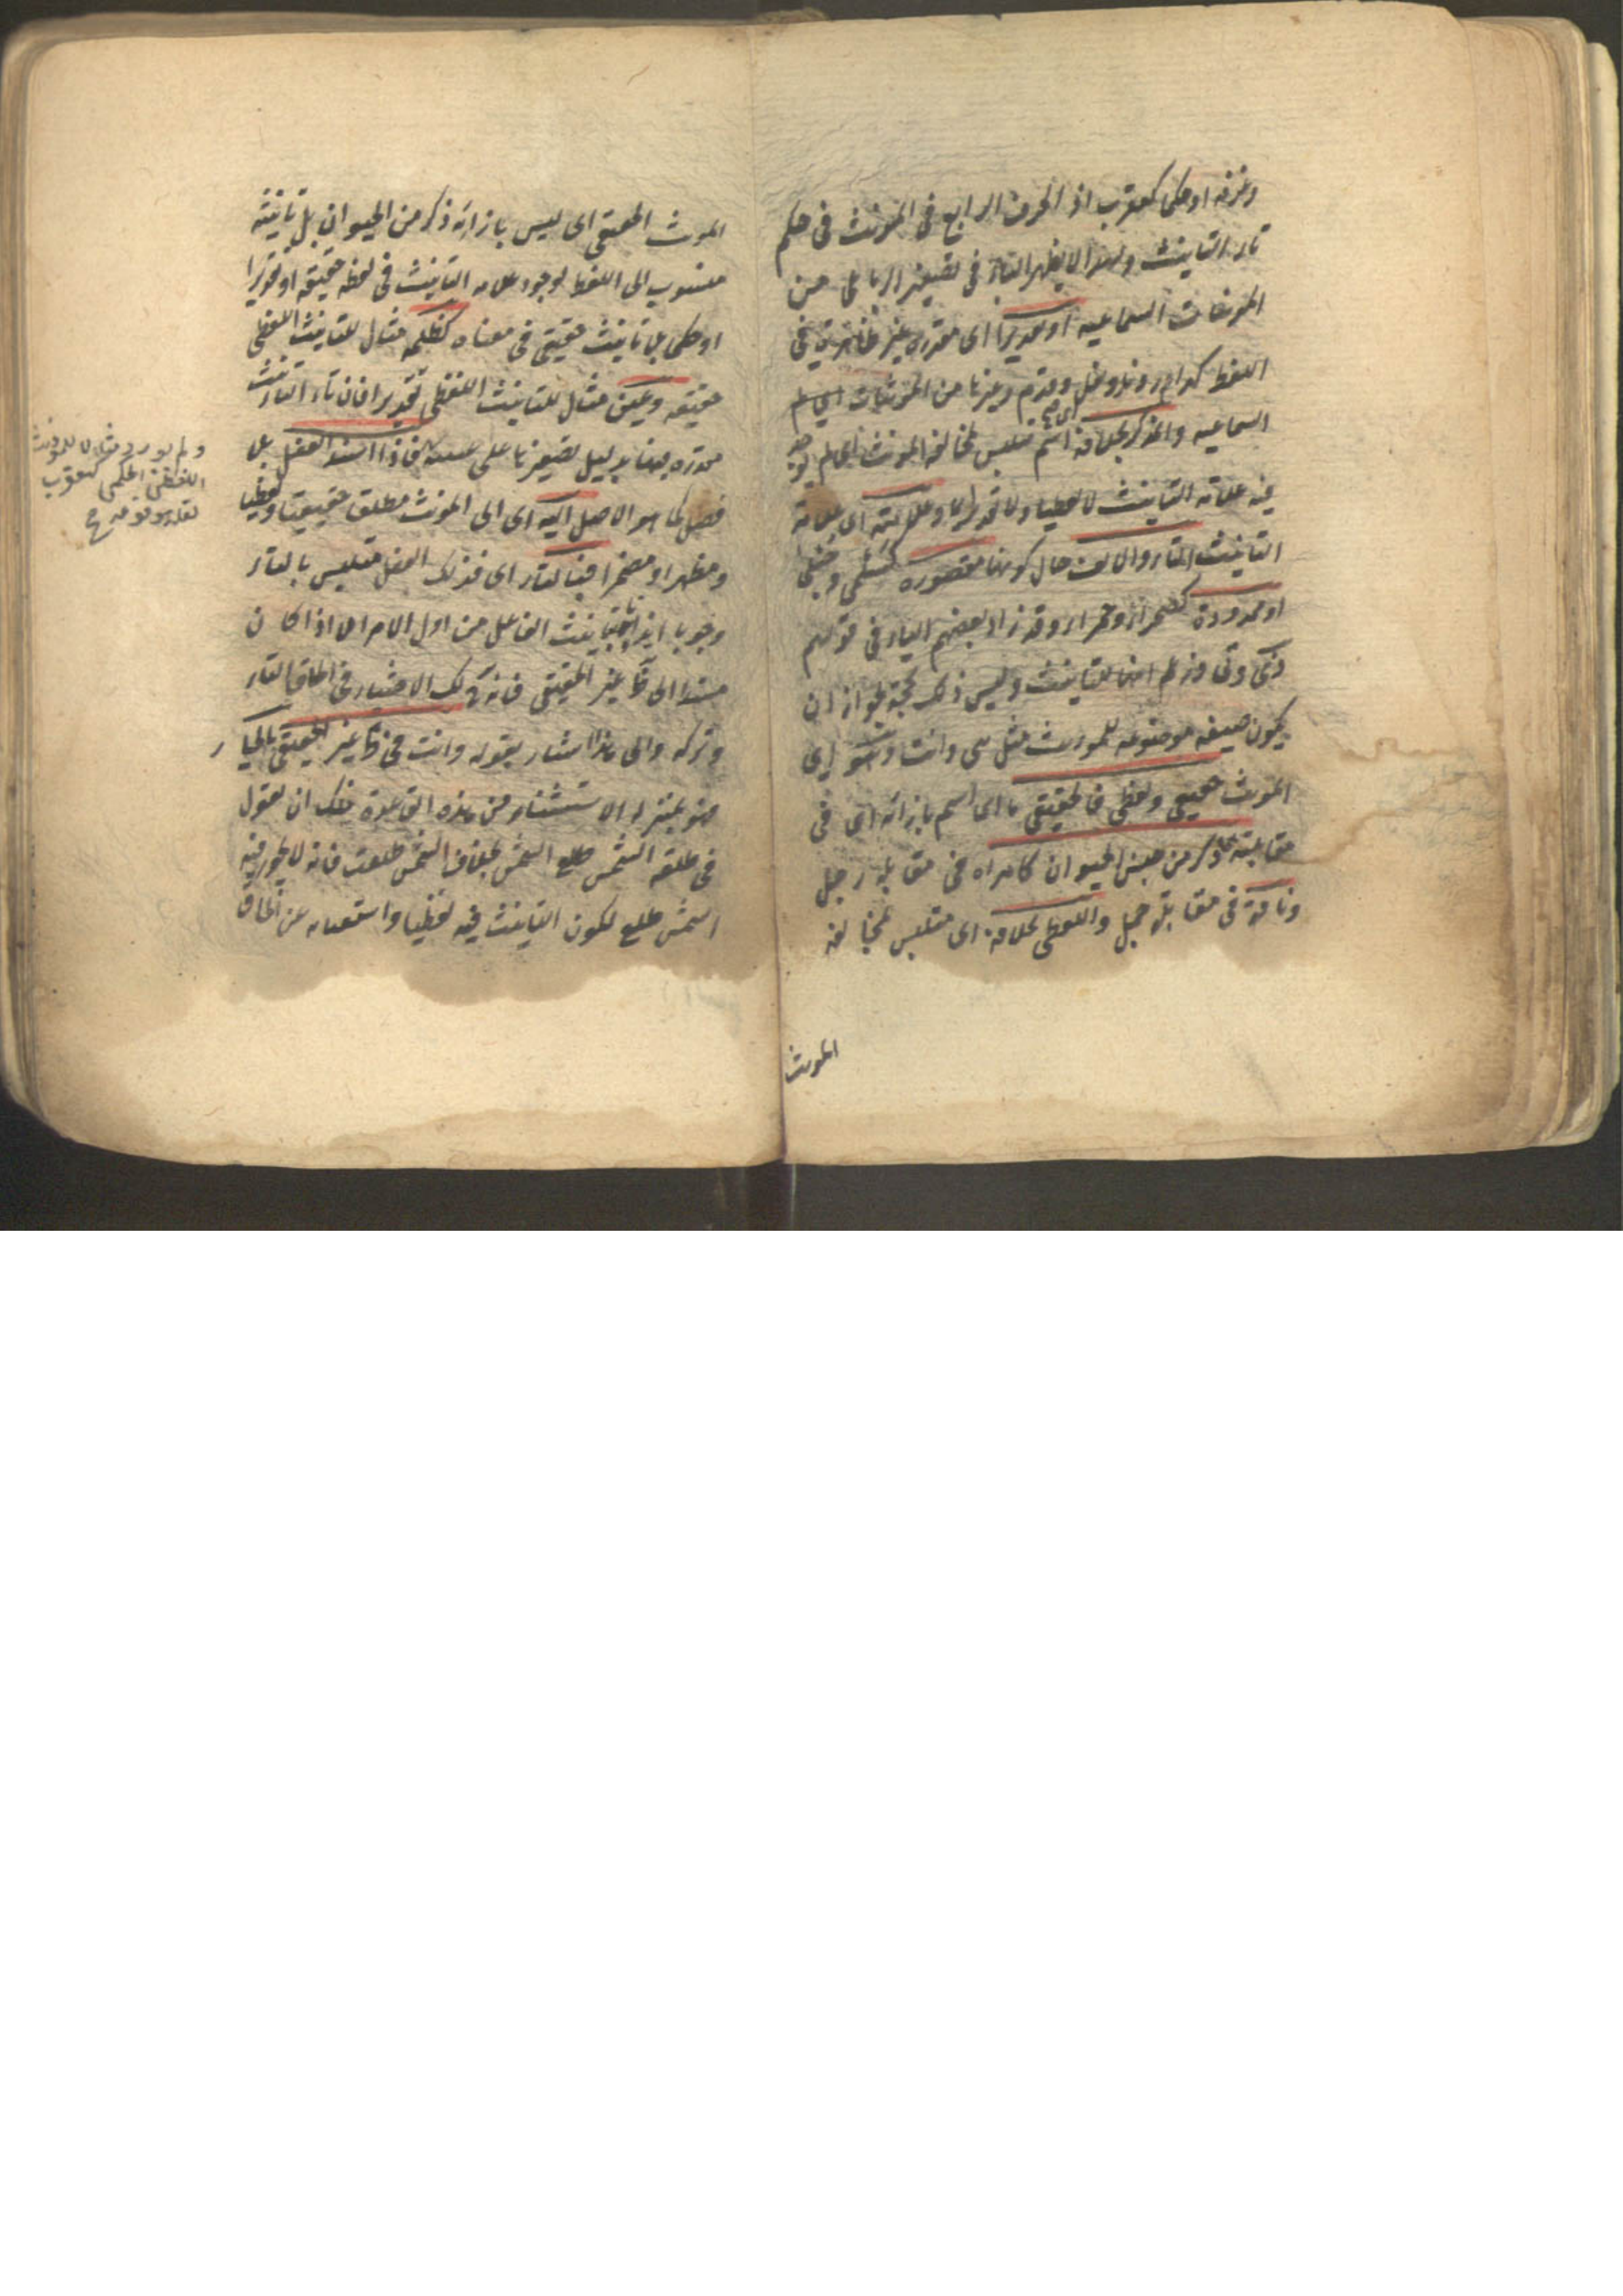 وغرفة او حكما كعقرب اذ الحرف الرابع في المونث في حكم
تاء التانيث ولهذا لا يظهر التاء في تصغير الرباعي من
المونثات السماعية او تقديرا اى مقدرة غير ظاهرة في
اللفظ كدار ونار ونعل وقدم وغيرها من المونثات
السماعية والمذكر بخلافه اى اسم متلبس بمخالفة المونث اى لم يوجد
فيه علامة التانيث لا لفظا ولا تقديرا ولا حكما وعلامته اى علامة
التانيث التاء والالف حال كونها مقصورة كسلمى وحبلى
او ممدودة كصحراء وحمراء وقد زاد بعضهم الياء في قولهم
ذى وتى وزعم انها للتانيث وليس ذلك بحجة لجواز ان
يكون صيغة موضوعة للمونث مثل هى وانت وهو اى
المونث حقيقي ولفظي فالحقيقي ما اى اسم بازائه اى في
مقابلته ذكر من جنس الحيوان كامراة في مقابلة رجل
وناقة في مقابلة جمل واللفظي بخلافه اى متلبس بمخالفة
المونث
المونث الحقيقي اى ليس بازائه ذكر من الحيوان بل تانيثه
منسوب الى اللفظ لوجود علامة التانيث في لفظه حقيقة او تقديرا
او حكما بلا تانيث حقيقي في معناه كظلمة مثال للتانيث اللفظي
حقيقة وعين مثال للتانيث اللفظي تقديرا فان تاء التانيث
مقدرة بها بدليل تصغيرها على عيينة فاذا اسند الفعل بلا
فصل كما هو الاصل اليه اى الى المونث مطلقا حقيقيا ولفظيا
ومظهرا او مضمرا فبالتاء اى فذلك الفعل متلبس بالتاء
وجوبا ايذانا بتانيث الفاعل من اول الامر الا اذا كان
مسندا الى ظاهر غير الحقيقي فانه لك الاختيار في الحاق التاء
وتركه والى هذا اشار بقوله وانت في ظاهر غير الحقيقي بالخيار
فهو بمنزلة الاستثناء من هذه القاعدة فلك ان تقول
في طلعت الشمس طلع الشمس بخلاف الشمس طلعت فانه لا يجوز فيه
الشمس طلع لكون التانيث فيه لفظيا واستغنائه عن الحاق
ولم يورد مثالا للمونث
اللفظي الحكمي كعقرب